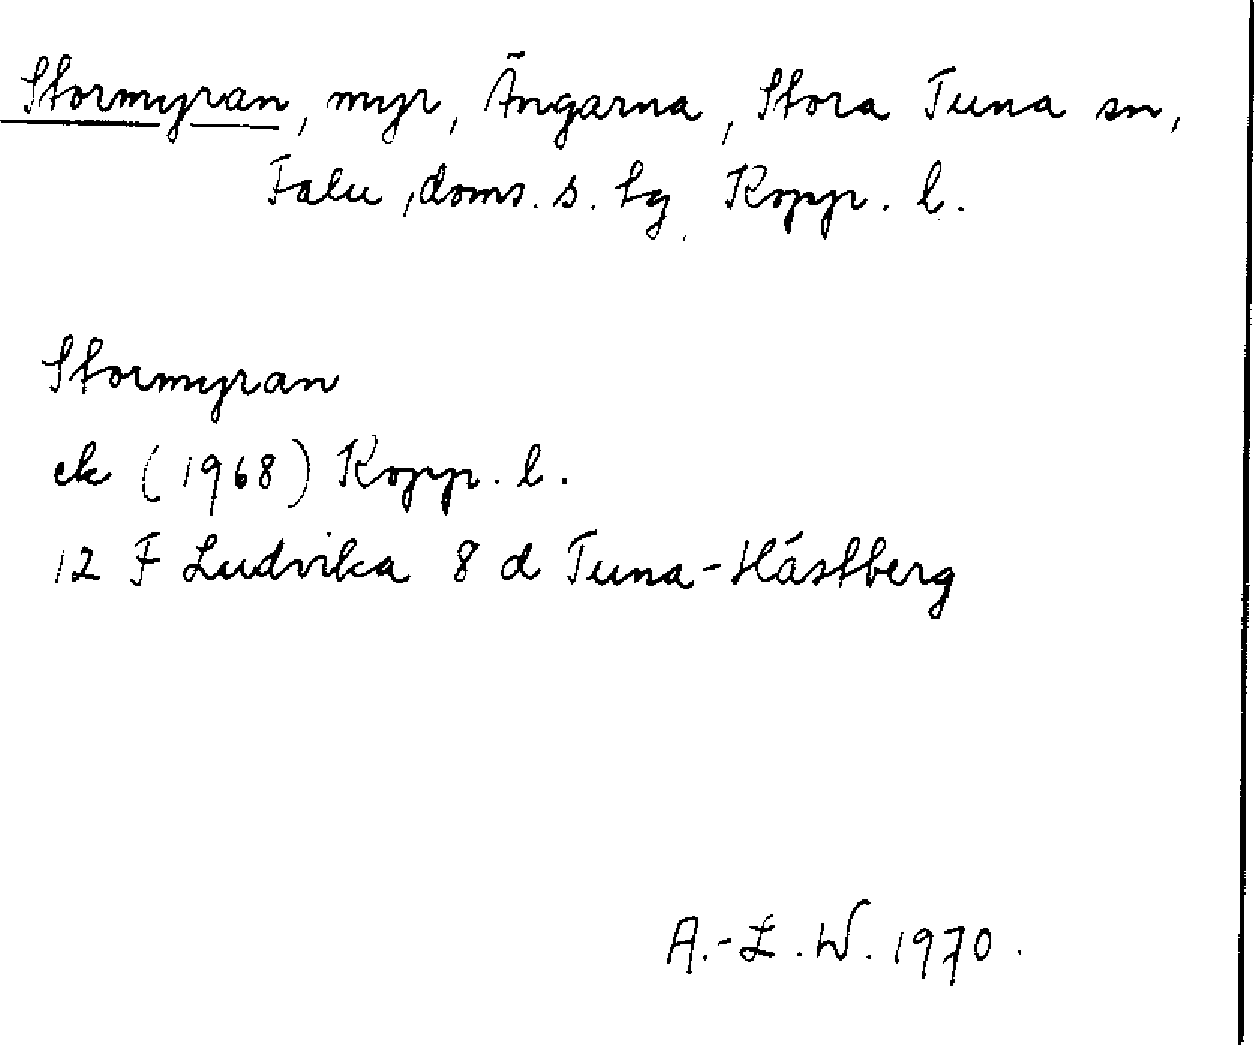 Stormyran, myr, Ängarna, Stora Tuna sn,
Falu, doms. s. tg, Kopp. l.
Stormyran
ek (1968) Kopp. l.
12 F Ludvika 8 d Tuna-Hästberg
A.-L. W. 1970.